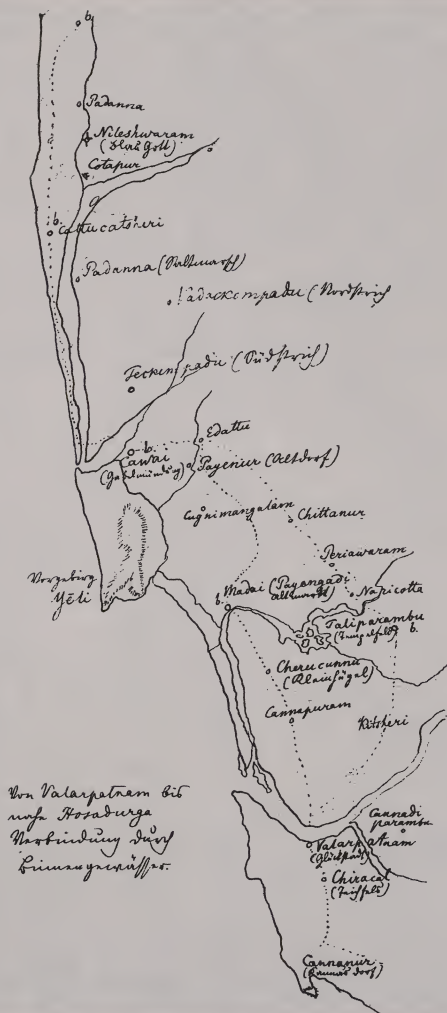 b.
Padanna
Nileshwaram
Cotapur
b.
Cattucatsheri
Padanna (Saltwarft)
(Nordstrich)
Teckempadu (Südstrich)
b.
Cawai
Edattu
Payenur (Altdorf)
Cugnimangalam
Chittanur
Periawaram
Vorgebirg
Yēli
Madai (Payangadi
b.
Napicotta
Taliparambu
(Tempelfeld) b.
Cherucunnu
(Kleinhügel)
Cannapuram
Kitsheri
Von Valarpatnam bis
nahe Hosadurga
Verbindung durch
Binnengewässer.
Cannadi
parambu
Valarpatnam
(Glückstadt)
Chiracal
Cannanur
dorf)